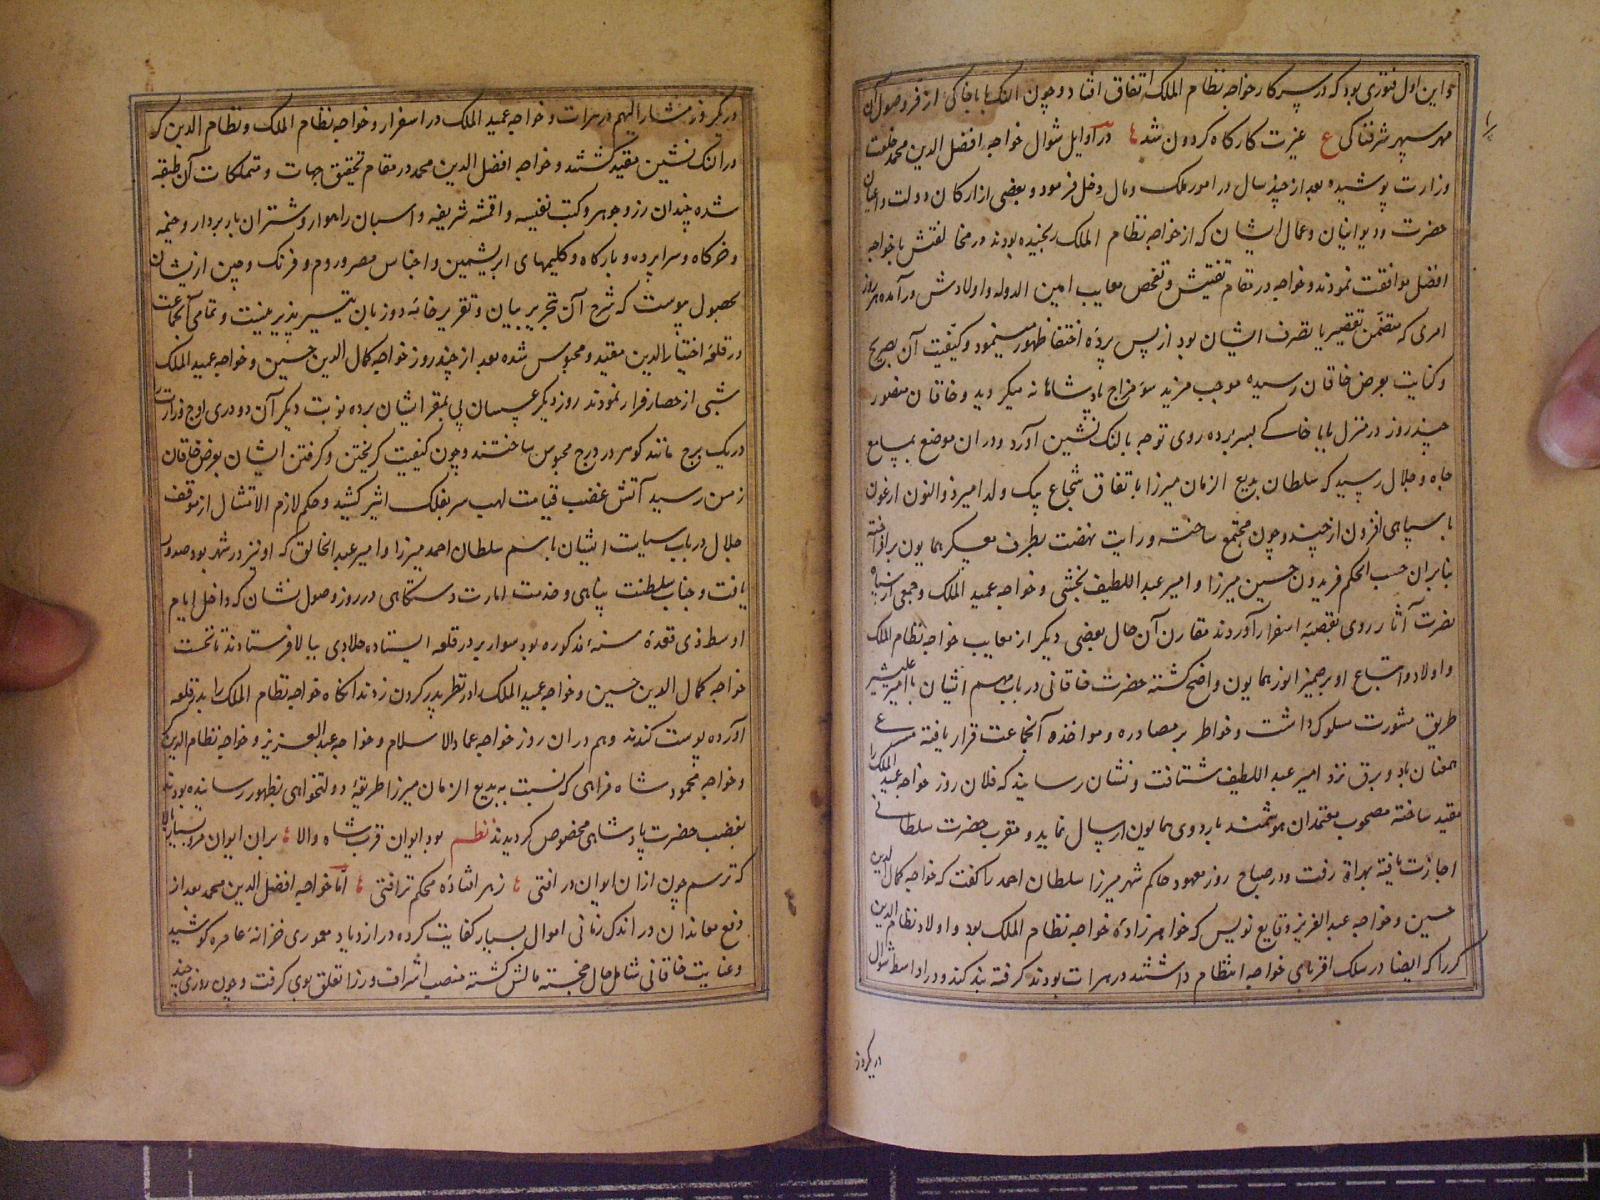 و این اول فتوری بود که در سرکار خواجه نظام الملک اتفاق افتاد و چون النک بابا خاکی از فر وصول آن
مهر سپهر شرفناکی ع عزت کارکاه کردون شد در اوایل شوال خواجه افضل الدین محمد خلعت
وزارت پوشیده بعد از چند سال در امور ملک و مال دخل فرمود و بعضی از ارکان دولت و اعیان
حضرت و دیوانیان و عمال ایشان که از خواجه نظام الملک رنجیده بودند در مخالفتش با خواجه
افضل موافقت نمودند و خواجه در مقام تفتیش و تفحص معایب امین الدوله و اولادش در آمده هر روز
امری که متضمن تقصیر یا تصرف ایشان بود از پس پرده اختفا ظهور مینمود و کیفیت آن بصریح
و کنایت بعرض خاقان رسیده موجب مزید سؤ مزاج پادشاهانه میکردید و خاقان منصور
چند روز در منزل بابا خاکی بسر برده روی توجه بالنک نشین آورد و در ان موضع بمسامع
جاه و جلال رسید که سلطان بدیع الزمان میرزا باتفاق شجاع بیک ولد امیر ذوالنون ارغون
با سپاهی افزون از چند و چون مجتمع ساخته و رایت نهضت بطرف معسکر همایون برافراخته
بنابران حسب الحکم فریدون حسین میرزا و امیر عبد اللطیف بخشی و خواجه عمید الملک و جمعی از سپاه
نصرت آثار روی بقصبه اسفزار آوردند مقارن آن حال بعضی دیکر از معایب خواجه نظام الملک
و اولاد و اتباع او بر ضمیر انور همایون واضح کشته حضرت خاقانی در باب مهم ایشان با امیر علیشیر
طریق مشورت سلوک داشت و خواطر بر مصادره و مواخذه آنجماعت قرار یافته مسرعی
همعنان باد و برق نزد امیر عبد اللطیف شتافت و نشان رسانید که فلان روز خواجه عمید الملک را
مقید ساخته مصحوب معتمدان هوشمند باردوی همایون ارسال نماید و مقرب حضرت سلطانی
اجازت یافته بهراة رفت و در صباح روز معهود حاکم شهر میرزا سلطان احمد را کفت که خواجه کمال الدین
حسین و خواجه عبد العزیز وقایع نویس که خواهرزاده خواجه نظام الملک بود و اولاد نظام الدین
کرد را که ایضا در سلک اقربای خواجه انتظام داشتند در هرات بودند کرفته بند کند و در اواسط شوال
در یکروز
در یکروز مشار الیهم در هرات و خواجه عمید الملک در اسفزار و خواجه نظام الملک و نظام الدین کرد
در النک نشین مقید کشتند و خواجه افضل الدین محمد در مقام تحقیق جهات و متملکات آن طبقه
شده چندان زر و جوهر و کتب نفیسه و اقمشه شریفه و اسبان راهوار و شتران باربردار و خیمه
و خرکاه و سراپرده و بارکاه و کلیمهای ابریشمین و اجناس مصر و روم و فرنک و چین از یشان
بحصول پیوست که شرح آن بتحریر بیان و تقریر خامه دو زبان تیسیر پذیر نیست و تمامی آنجماعت
در قلعه اختیار الدین مقید و محبوس شده بعد از چند روز خواجه کمال الدین حسین و خواجه عمید الملک
شبی از حصار فرار نمودند روز دیکر عسسان پی بمقر ایشان برده نوبت دیکر آن دو دری اوج وزارت را
در یک برج مانند کوهر در درج محبوس ساختند و چون کیفیت کریختن و کرفتن ایشان بعرض خاقان
زمن رسید آتش غضب قیامت لهب سر بفلک اثیر کشید و حکم لازم الامتثال از موقف
جلال در باب سیاست ایشان باسم سلطان احمد میرزا و امیر عبد الخالق که او نیز در شهر بود صدور
یافت و جناب سلطنت پناهی و خدمت امارت دستکاهی در روز وصول نشان که داخل ایام
اوسط ذی قعده سنه مذکوره بود سواره بر در قلعه ایستاده جلادی ببالا فرستادند تا نخست
خواجه کمال الدین حسین و خواجه عمید الملک را در نظر پدر کردن زدند آنکاه خواجه نظام الملک را بدر قلعه
آورده پوست کندند و هم در ان روز خواجه عماد الاسلام و خواجه عبد العزیز و خواجه نظام الدین کرد
و خواجه محمود شاه فراهی که نسبت به بدیع الزمان میرزا طریقه دولتخواهی بظهور رسانیده بودند
بغضب حضرت پادشاهی مخصوص کردیدند نظم بود ایوان قرب شاه والا بران ایوان مرو بسیار بالا
که ترسم چون ازان ایوان در افتی ز هر افتاده محکم تر افتی اما خواجه افضل الدین محمد بعد از
دفع معاندان در اندک زمانی اموال بسیار کفایت کرده در ازدیاد معموری خزانه عامره کوشید
و عنایت خاقانی شامل حال خجسته مآلش کشته منصب اشراف وزرا تعلق بوی کرفت و چون روزی چند